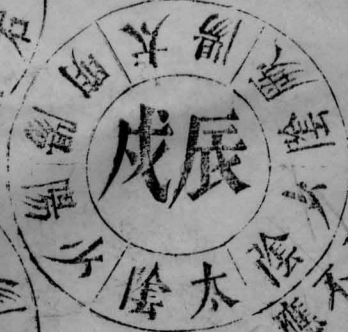 辰戌
太陽
厥陰
少陰
太陰
少陽
陽明